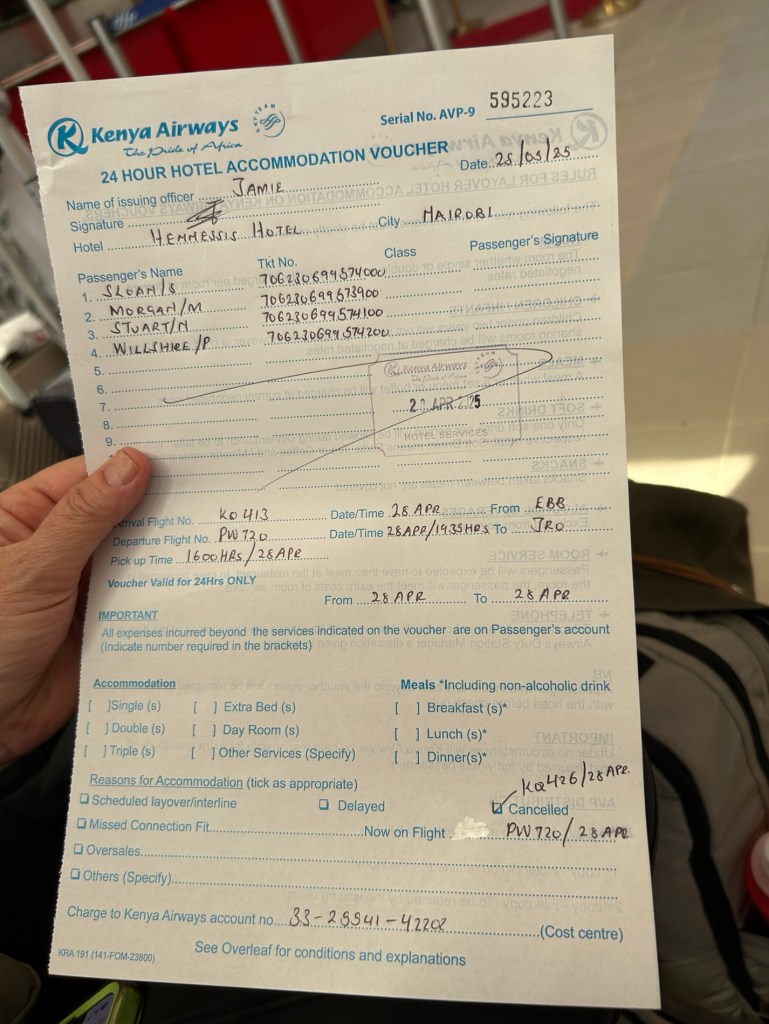 Kenya Airways
The Pride of Africa
Serial No. AVP-9 595223
24 HOUR HOTEL ACCOMMODATION VOUCHER
Date 28/05/25
Name of issuing officer JAMIE
Signature
Hotel HEMMESSIS HOTEL City NAIROBI
Passenger's Name Tkt No. Class Passenger's Signature
1. SLOAN/S 706230699574000
2. MORGAN/M 706230699573900
3. STUART/N 706230699574100
4. WILLSHIRE/P 706230699574200
5.
6.
7.
8.
9.
Kenya Airways
The Pride of Africa
APR 2025
HOTEL SERVICES
Arrival Flight No. KQ 413 Date/Time 28 APR From EBB
Departure Flight No. PW720 Date/Time 28APR/1935HRS To JRO
Pick up Time 1600HRS/28APR
Voucher Valid for 24Hrs ONLY
From 28 APR To 28 APR
IMPORTANT
All expenses incurred beyond the services indicated on the voucher are on Passenger's account
(Indicate number required in the brackets)
Accommodation Meals *Including non-alcoholic drink
[ ] Single (s) [ ] Extra Bed (s) [ ] Breakfast (s)*
[ ] Double (s) [ ] Day Room (s) [ ] Lunch (s)*
[ ] Triple (s) [ ] Other Services (Specify) [ ] Dinner(s)*
Reasons for Accommodation (tick as appropriate) KQ426/28APR.
Scheduled layover/interline Delayed Cancelled
Missed Connection Flt. Now on Flight PW720/28APR
Oversales
Others (Specify)
Charge to Kenya Airways account no. 33-25541-42202 (Cost centre)
KRA 191 (141-FOM-23800) See Overleaf for conditions and explanations